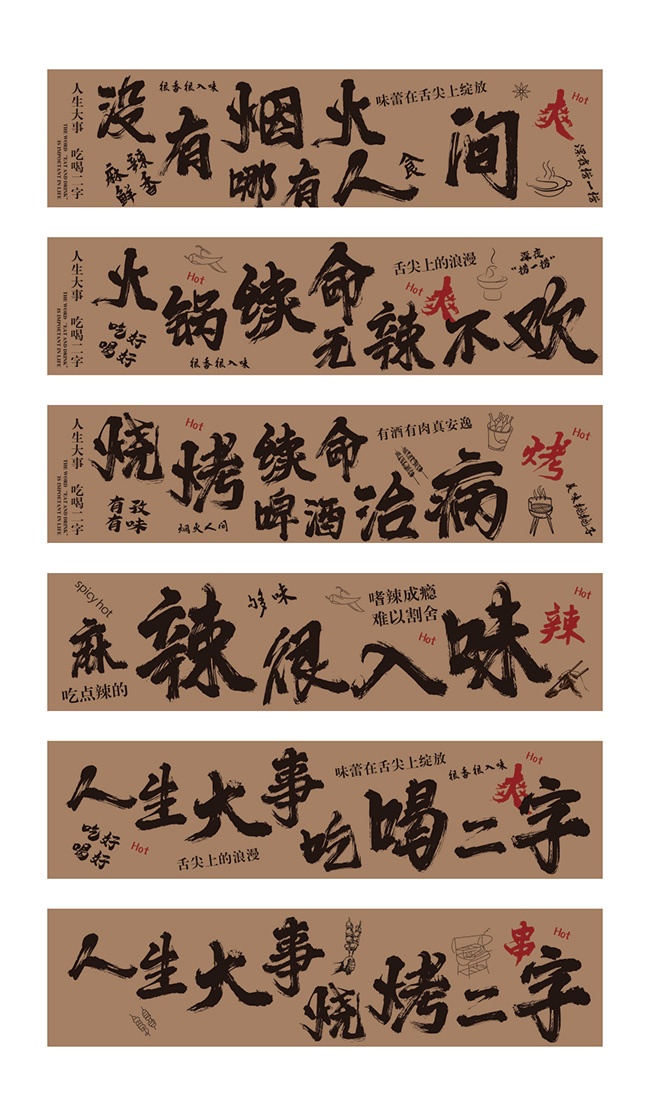 人生大事 吃喝二字
THE WORD "EAT AND DRINK"
IS IMPORTANT IN LIFE
没有烟火
哪有人间
很香很入味
麻辣鲜香
味蕾在舌尖上绽放
食
爽
Hot
深夜捞一捞
人生大事 吃喝二字
THE WORD "EAT AND DRINK"
IS IMPORTANT IN LIFE
火锅续命
无辣不欢
Hot
吃好
喝好
很香很入味
舌尖上的浪漫
爽
Hot
深夜
"捞一捞"
人生大事 吃喝二字
THE WORD "EAT AND DRINK"
IS IMPORTANT IN LIFE
烧烤续命
啤酒治病
Hot
有孜
有味
烟火人间
有酒有肉真安逸
烤
Hot
spicy hot
麻辣很入味
吃点辣的
够味
嗜辣成瘾
难以割舍
Hot
辣
Hot
人生大事
吃喝二字
吃好
喝好
Hot
舌尖上的浪漫
味蕾在舌尖上绽放
很香很入味
爽
Hot
人生大事
烧烤二字
串
Hot